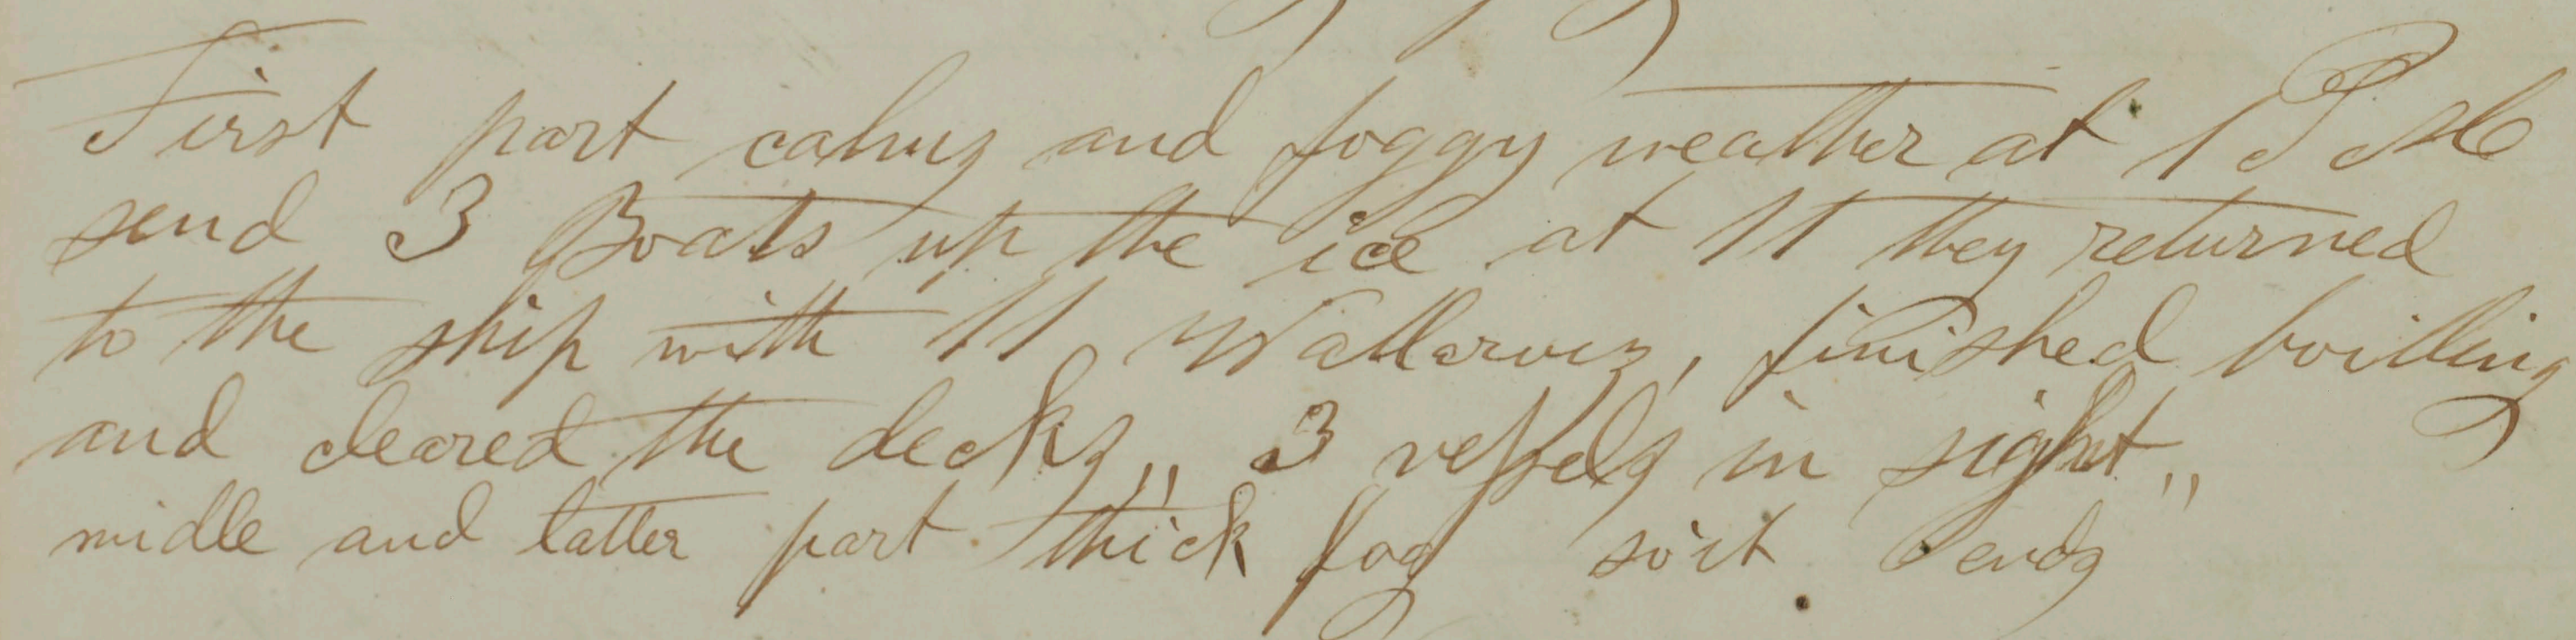 First part calms and foggy weather at 1 P M
send 3 Boats up the ice at 11 they returned
to the ship with 11 Wallarows, finished boilling
and cleared the decks,, 3 vessels in sight,,
midle and latter part thick fog so it ends